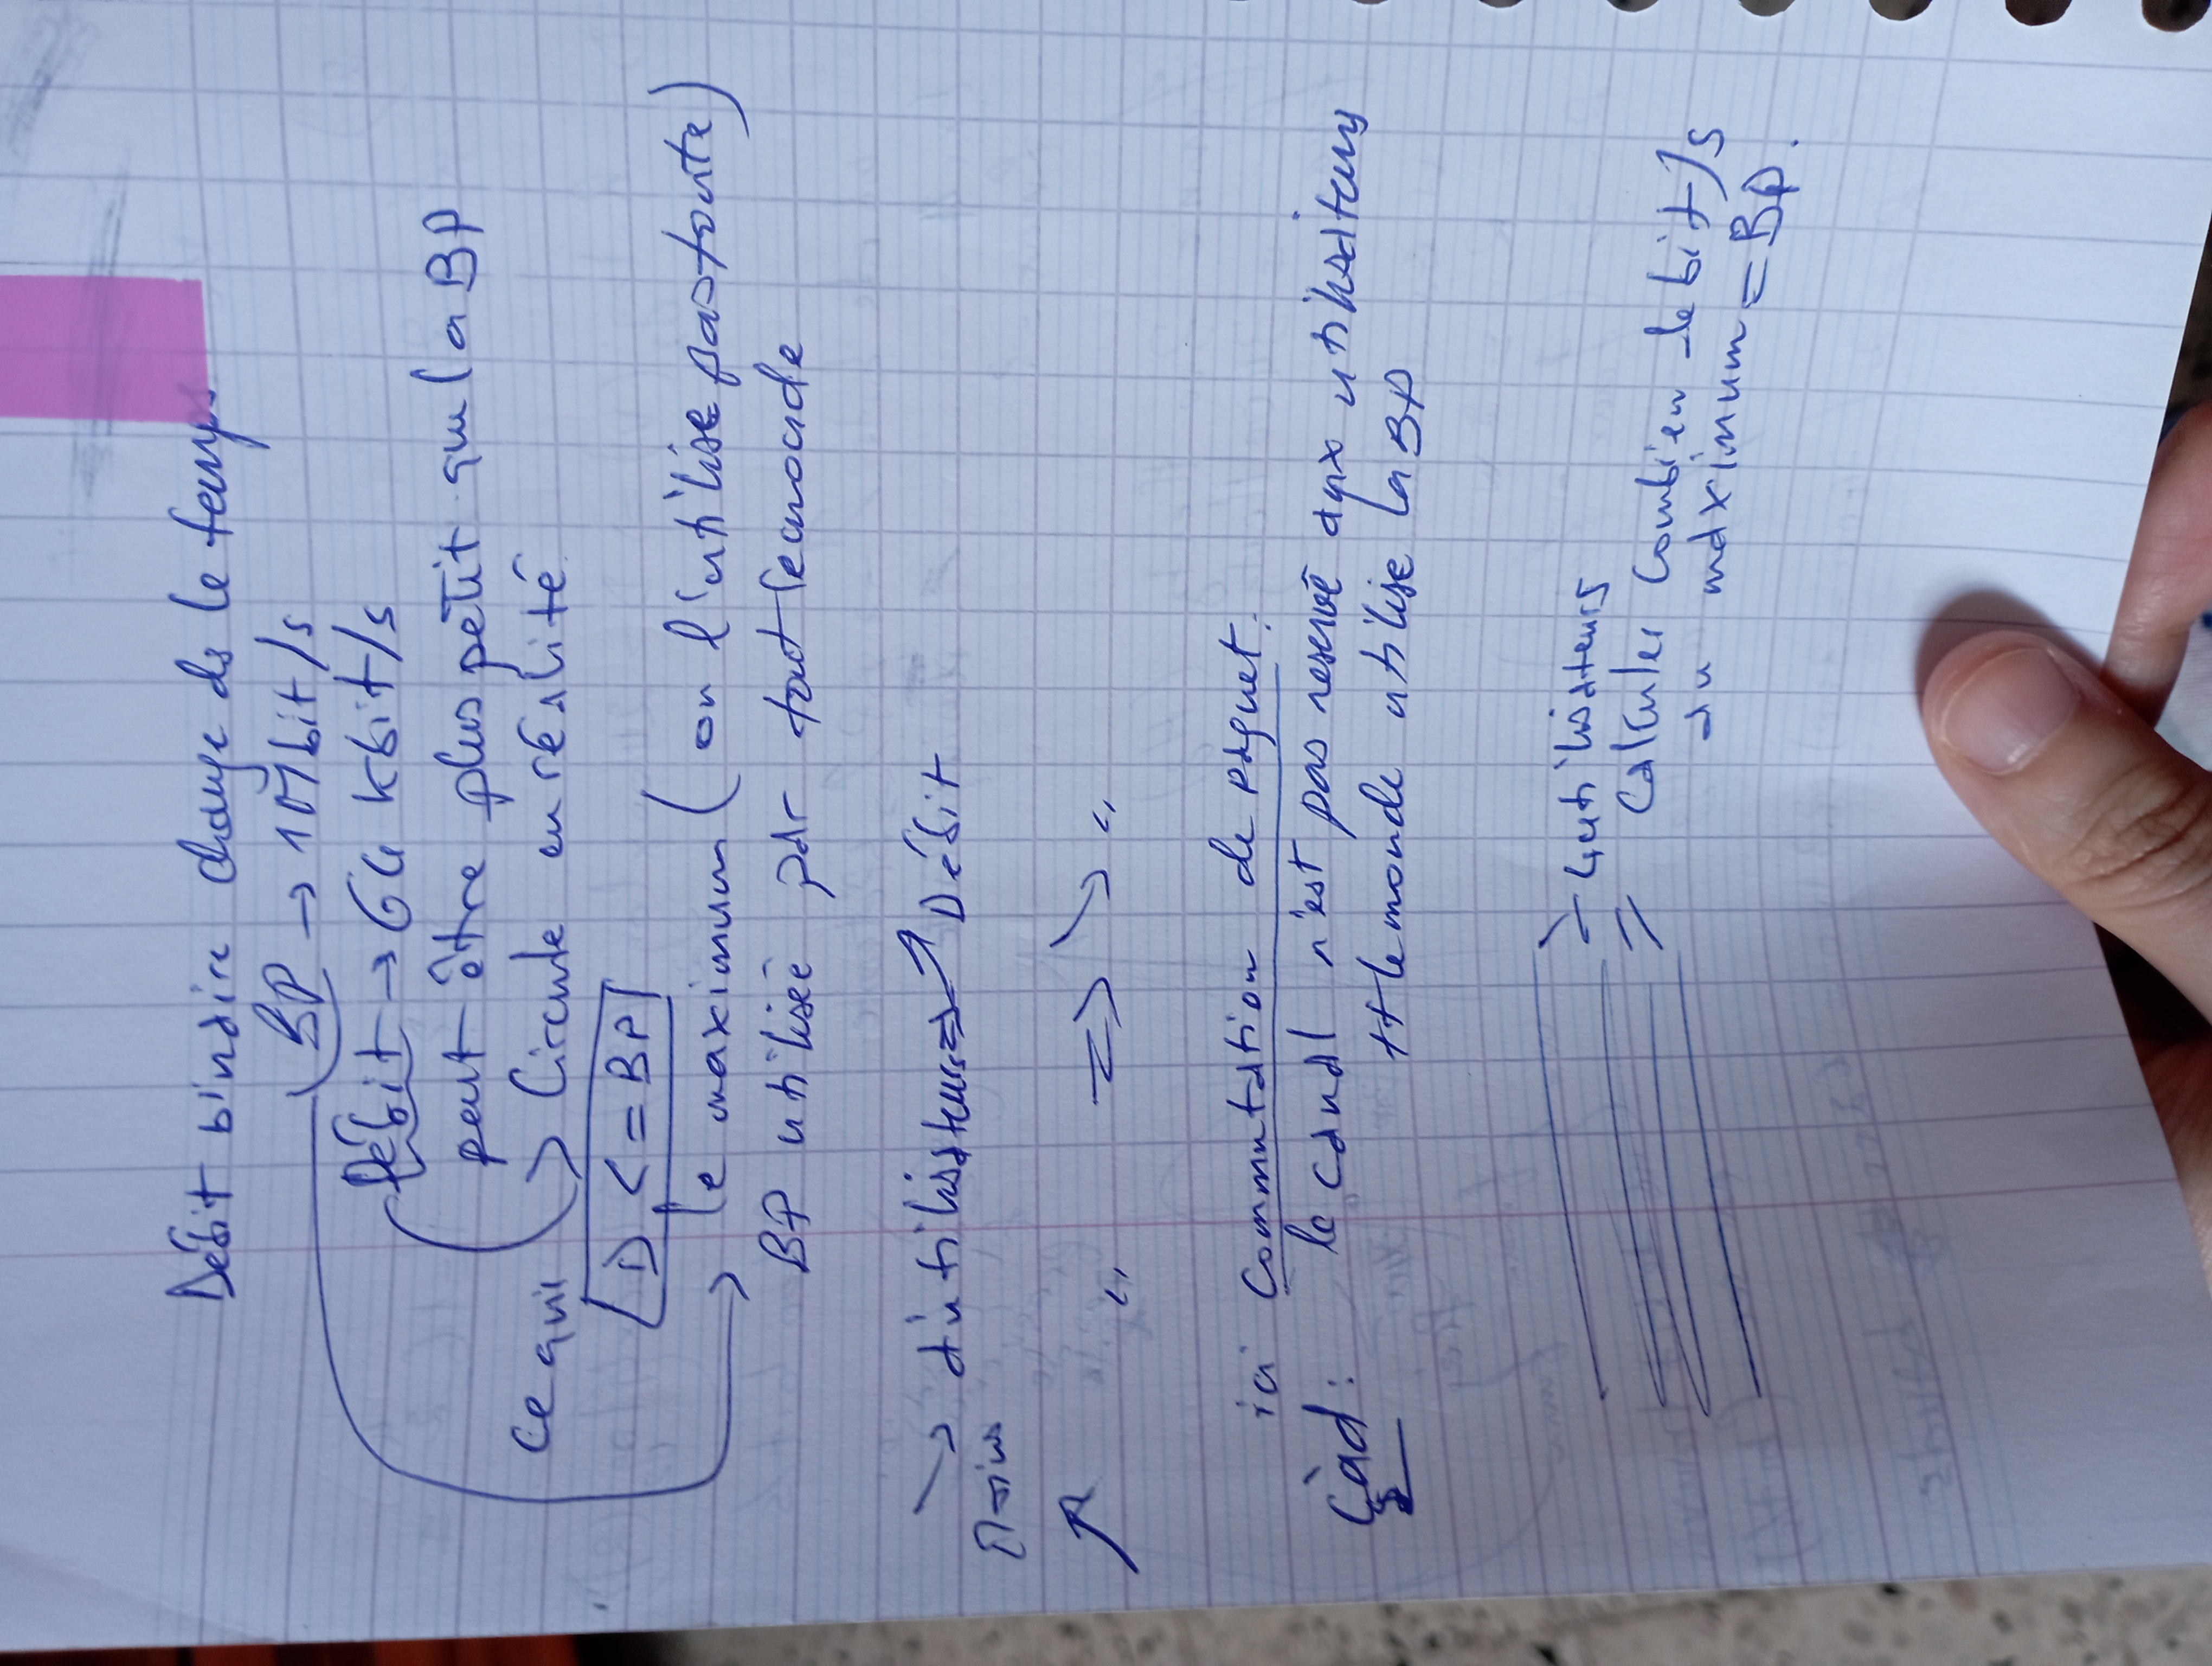 Débit binaire change ds le temps
BP → 1 Mbit/s
Débit → 64 kbit/s
peut être plus petit que la BP
ce qui > Circule en réalité
D <= BP
→ le maximum ( on l'utilise pas toute )
BP utilisée par tout le monde
↘ d'utilisateurs => ↗ Débit
Moins
↗ " => ↘ "
ici commutation de paquet.
càd : le canal n'est pas reservé aux utilisateurs
tt le monde utilise la BP
4 utilisateurs
= Calculer combien de bit/s
au maximum = BP.